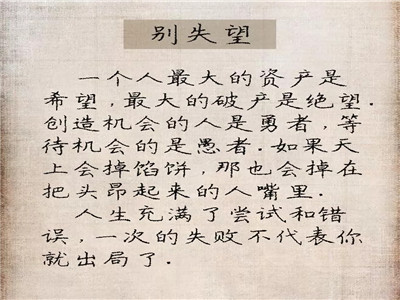 别失望
一个人最大的资产是
希望,最大的破产是绝望.
创造机会的人是勇者,等
待机会的是愚者.如果天
上会掉馅饼,那也会掉在
把头昂起来的人嘴里.
人生充满了尝试和错
误,一次的失败不代表你
就出局了.